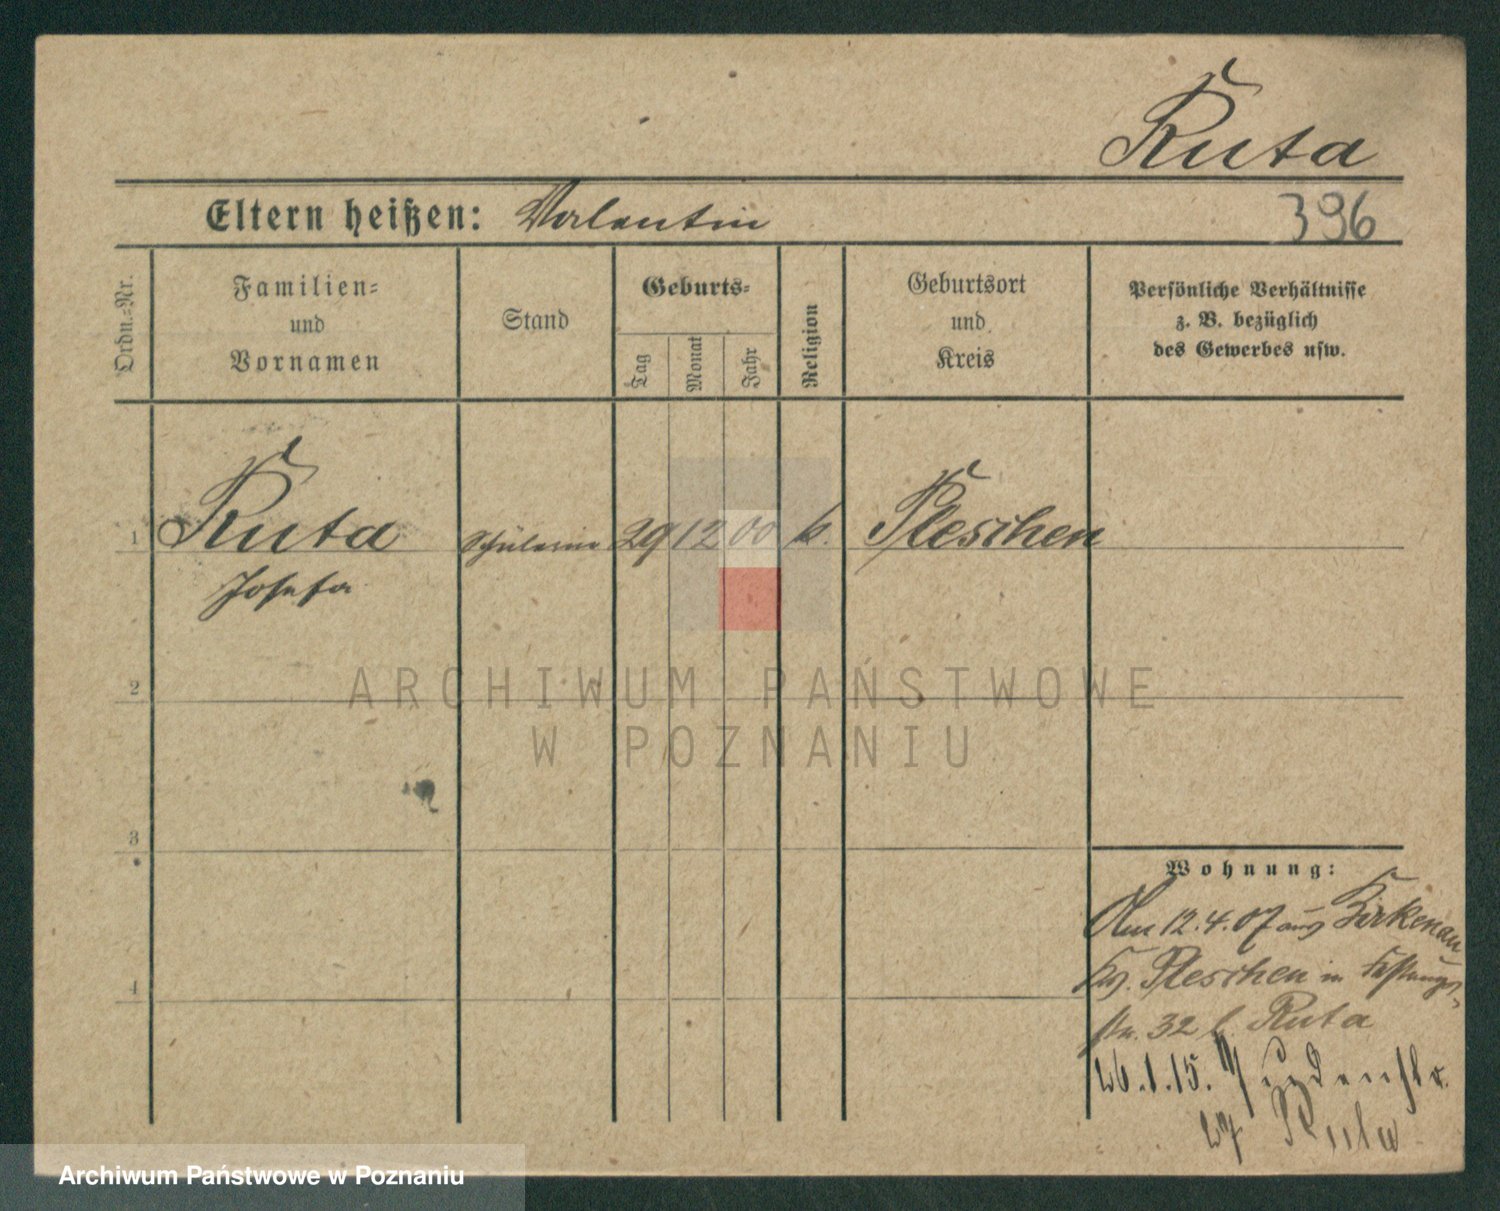 Ruta
396
Eltern heißen: Valentin
Ordn.-Nr.
Familien-
und
Vornamen
Stand
Geburts-
Tag
Monat
Jahr
Religion
Geburtsort
und
Kreis
Persönliche Verhältnisse
z. B. bezüglich
des Gewerbes usw.
1 Ruta Schülerin 29 12 00 k. Pleschen
Josefa
2
3
4
ARCHIWUM PAŃSTWOWE
W POZNANIU
Wohnung:
Am 12.4.07 aus Birkenau
Kr. Pleschen in Festungs-
str. 32 b. Ruta
26.1.15. Judenstr.
27 Ruta
Archiwum Państwowe w Poznaniu